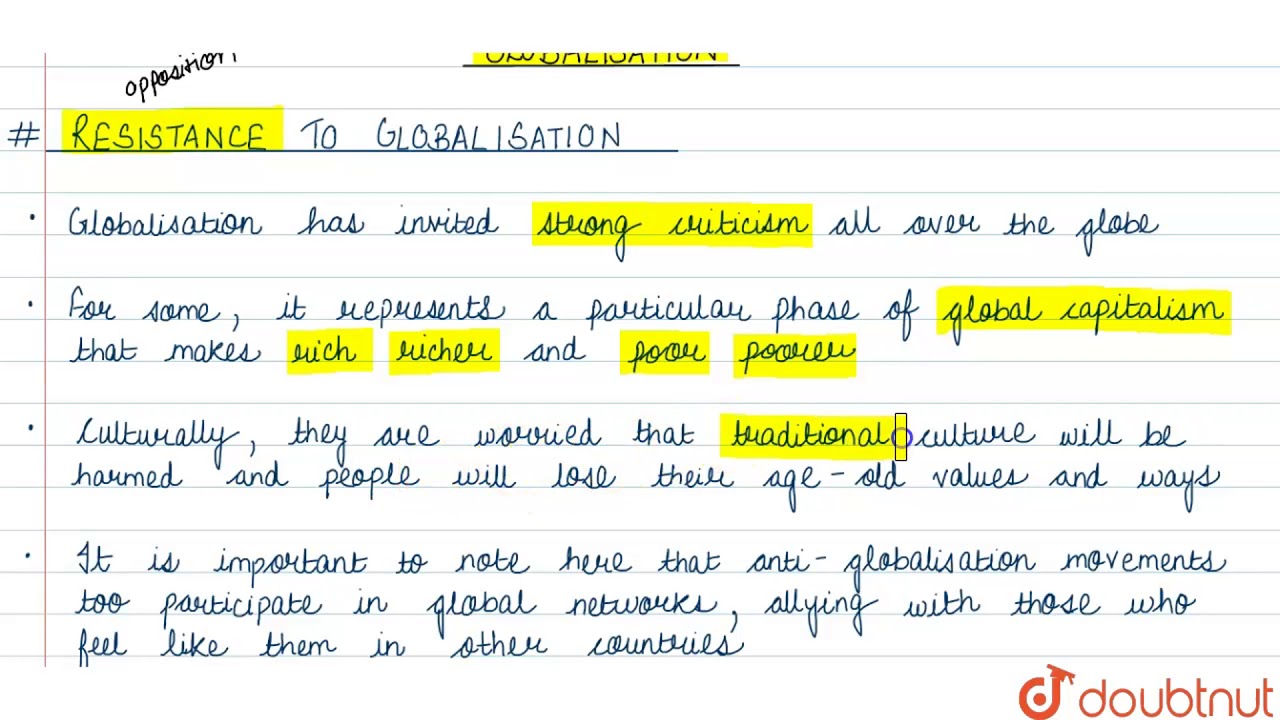 GLOBALISATION
opposition
# RESISTANCE TO GLOBALISATION
• Globalisation has invited strong criticism all over the globe
• For some, it represents a particular phase of global capitalism
that makes rich richer and poor poorer
• Culturally, they are worried that traditional culture will be
harmed and people will lose their age-old values and ways
• It is important to note here that anti-globalisation movements
too participate in global networks, allying with those who
feel like them in other countries
doubtnut